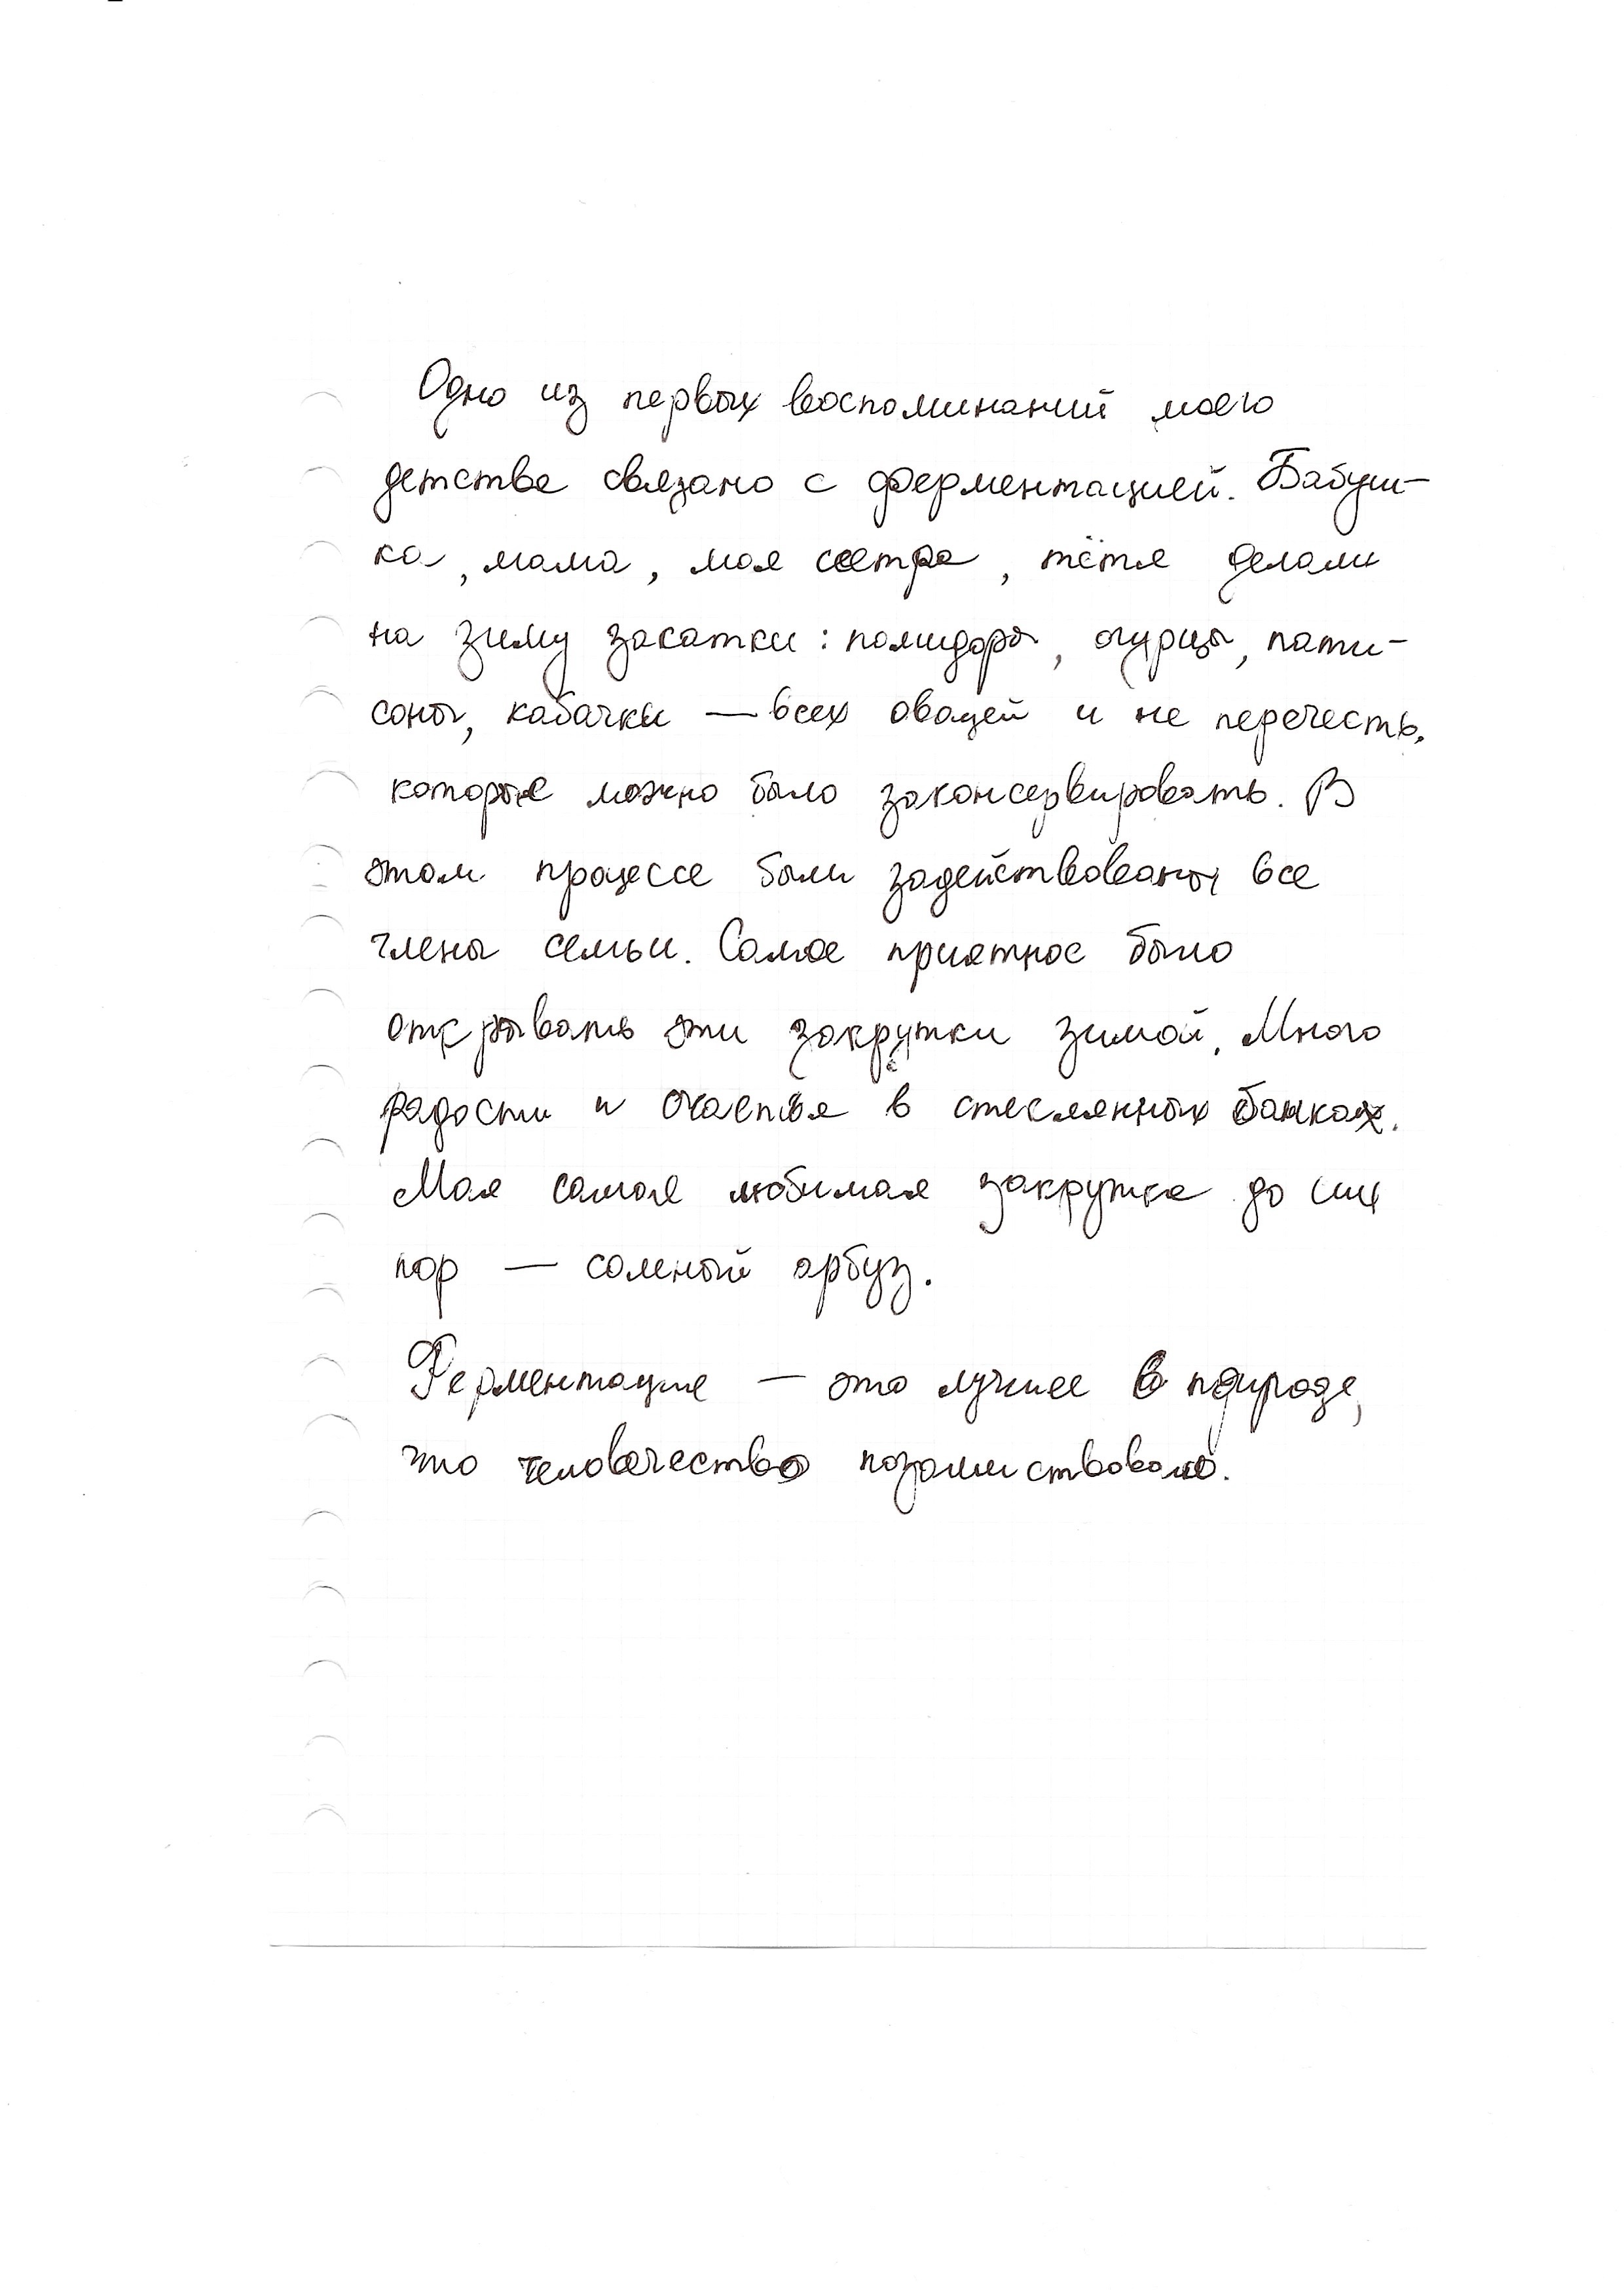 Одно из первых воспоминаний моего
детства связано с ферментацией. Бабуш-
ка, мама, моя сестра, тётя делали
на зиму закатки: помидоры, огурцы, пати-
соны, кабачки — всех овощей и не перечесть,
которые можно было законсервировать. В
этом процессе были задействованы все
члены семьи. Самое приятное было
открывать эти закрутки зимой. Много
радости и счастья в стеклянных банках.
Моя самая любимая закрутка до сих
пор — соленый арбуз.
Ферментация — это лучшее в природе,
что человечество позаимствовало.